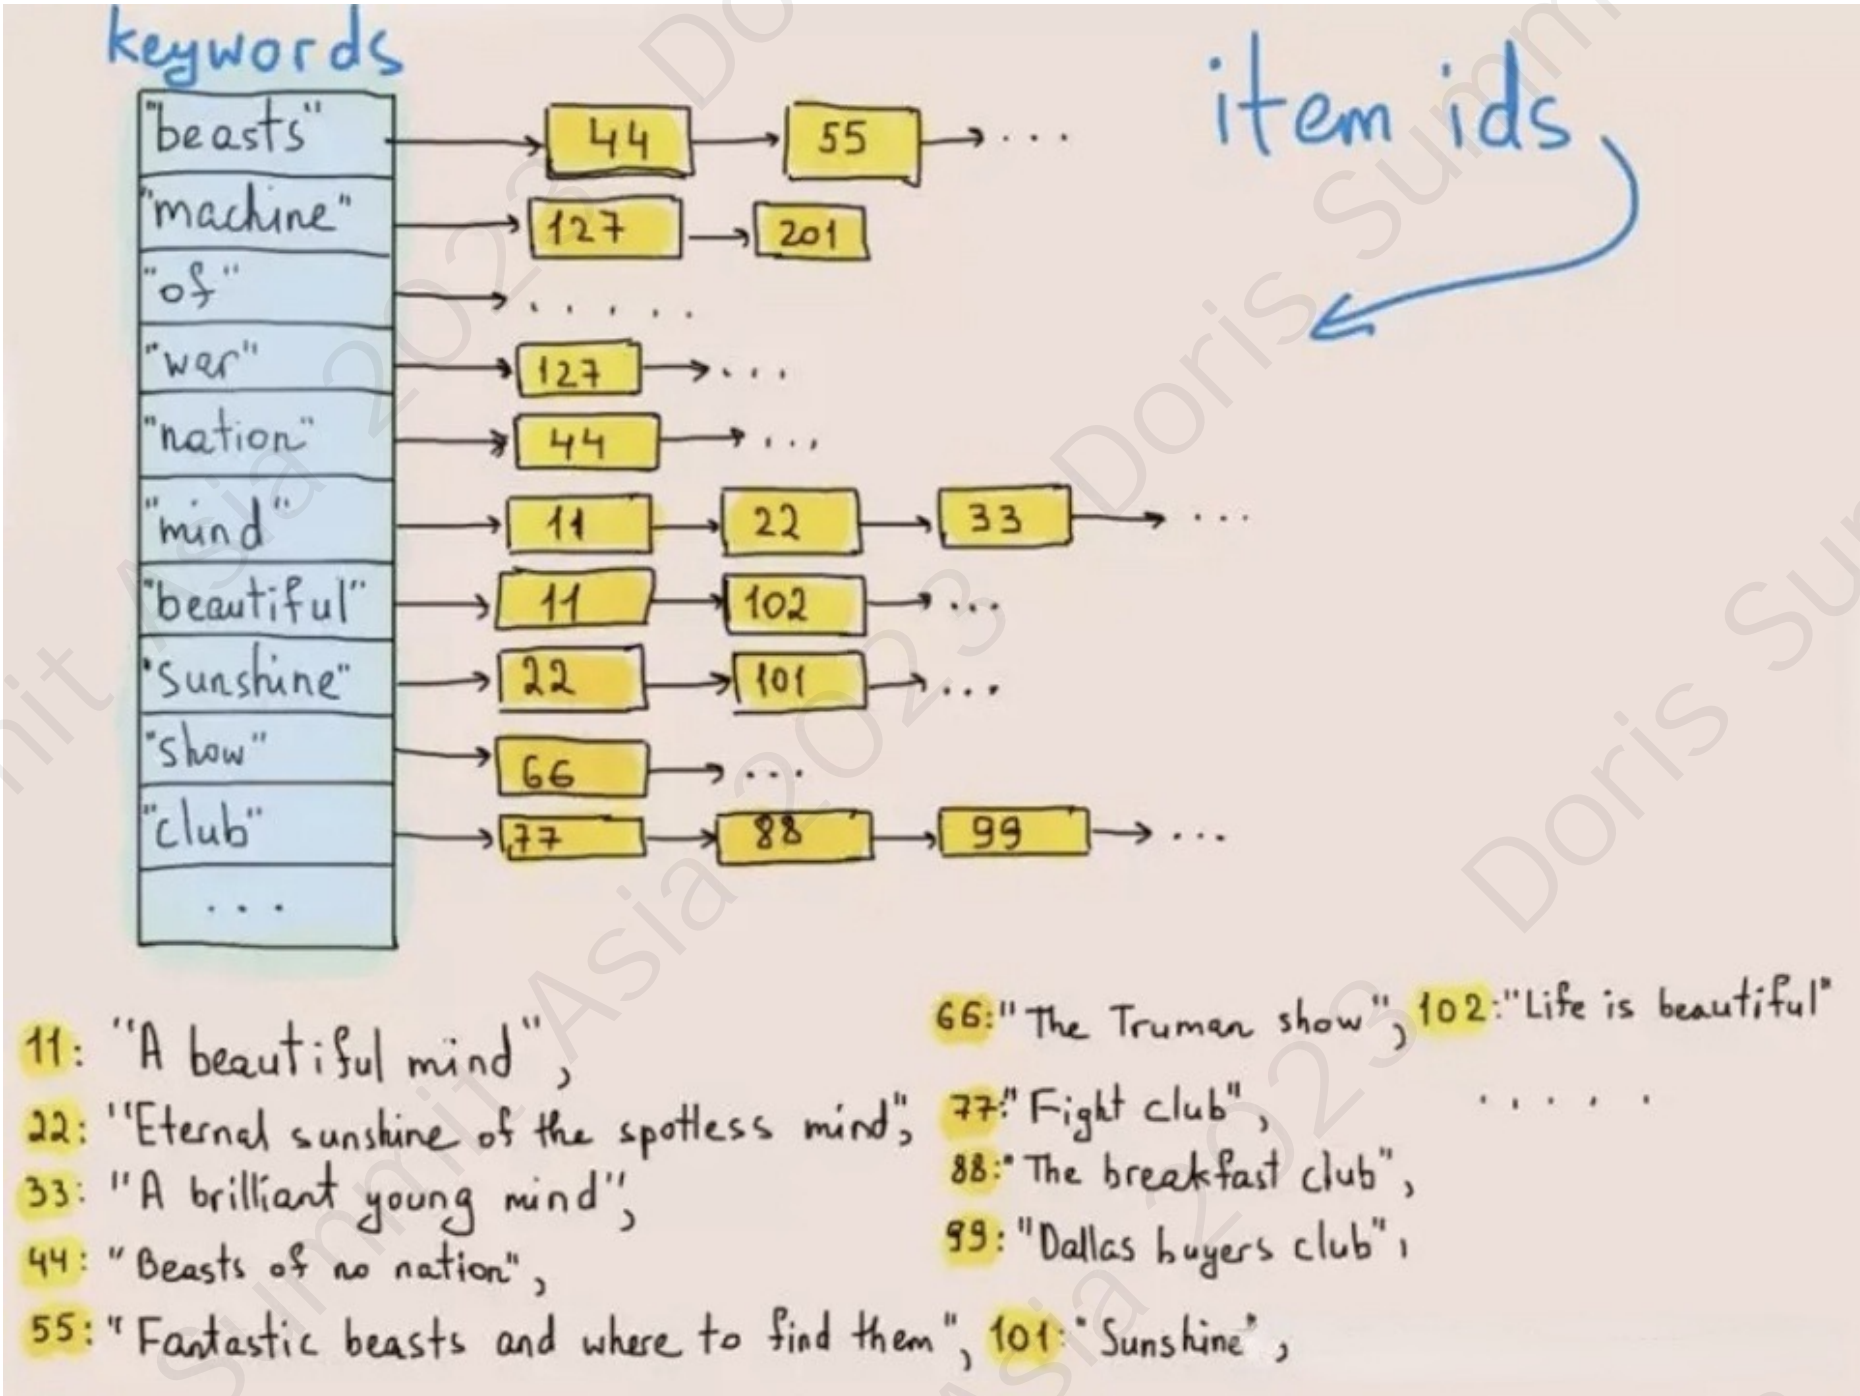 keywords
item ids
"beasts" 44 55 ...
"machine" 127 201
"of" .....
"war" 127 ...
"nation" 44 ...
"mind" 11 22 33 ...
"beautiful" 11 102 ...
"sunshine" 22 101 ...
"show" 66 ...
"club" 77 88 99 ...
...
11: "A beautiful mind",
22: "Eternal sunshine of the spotless mind",
33: "A brilliant young mind",
44: "Beasts of no nation",
55: "Fantastic beasts and where to find them",
66: "The Truman show", 102: "Life is beautiful"
77: "Fight club", .....
88: "The breakfast club",
99: "Dallas buyers club",
101: "Sunshine",
Summit Asia 2023 Doris